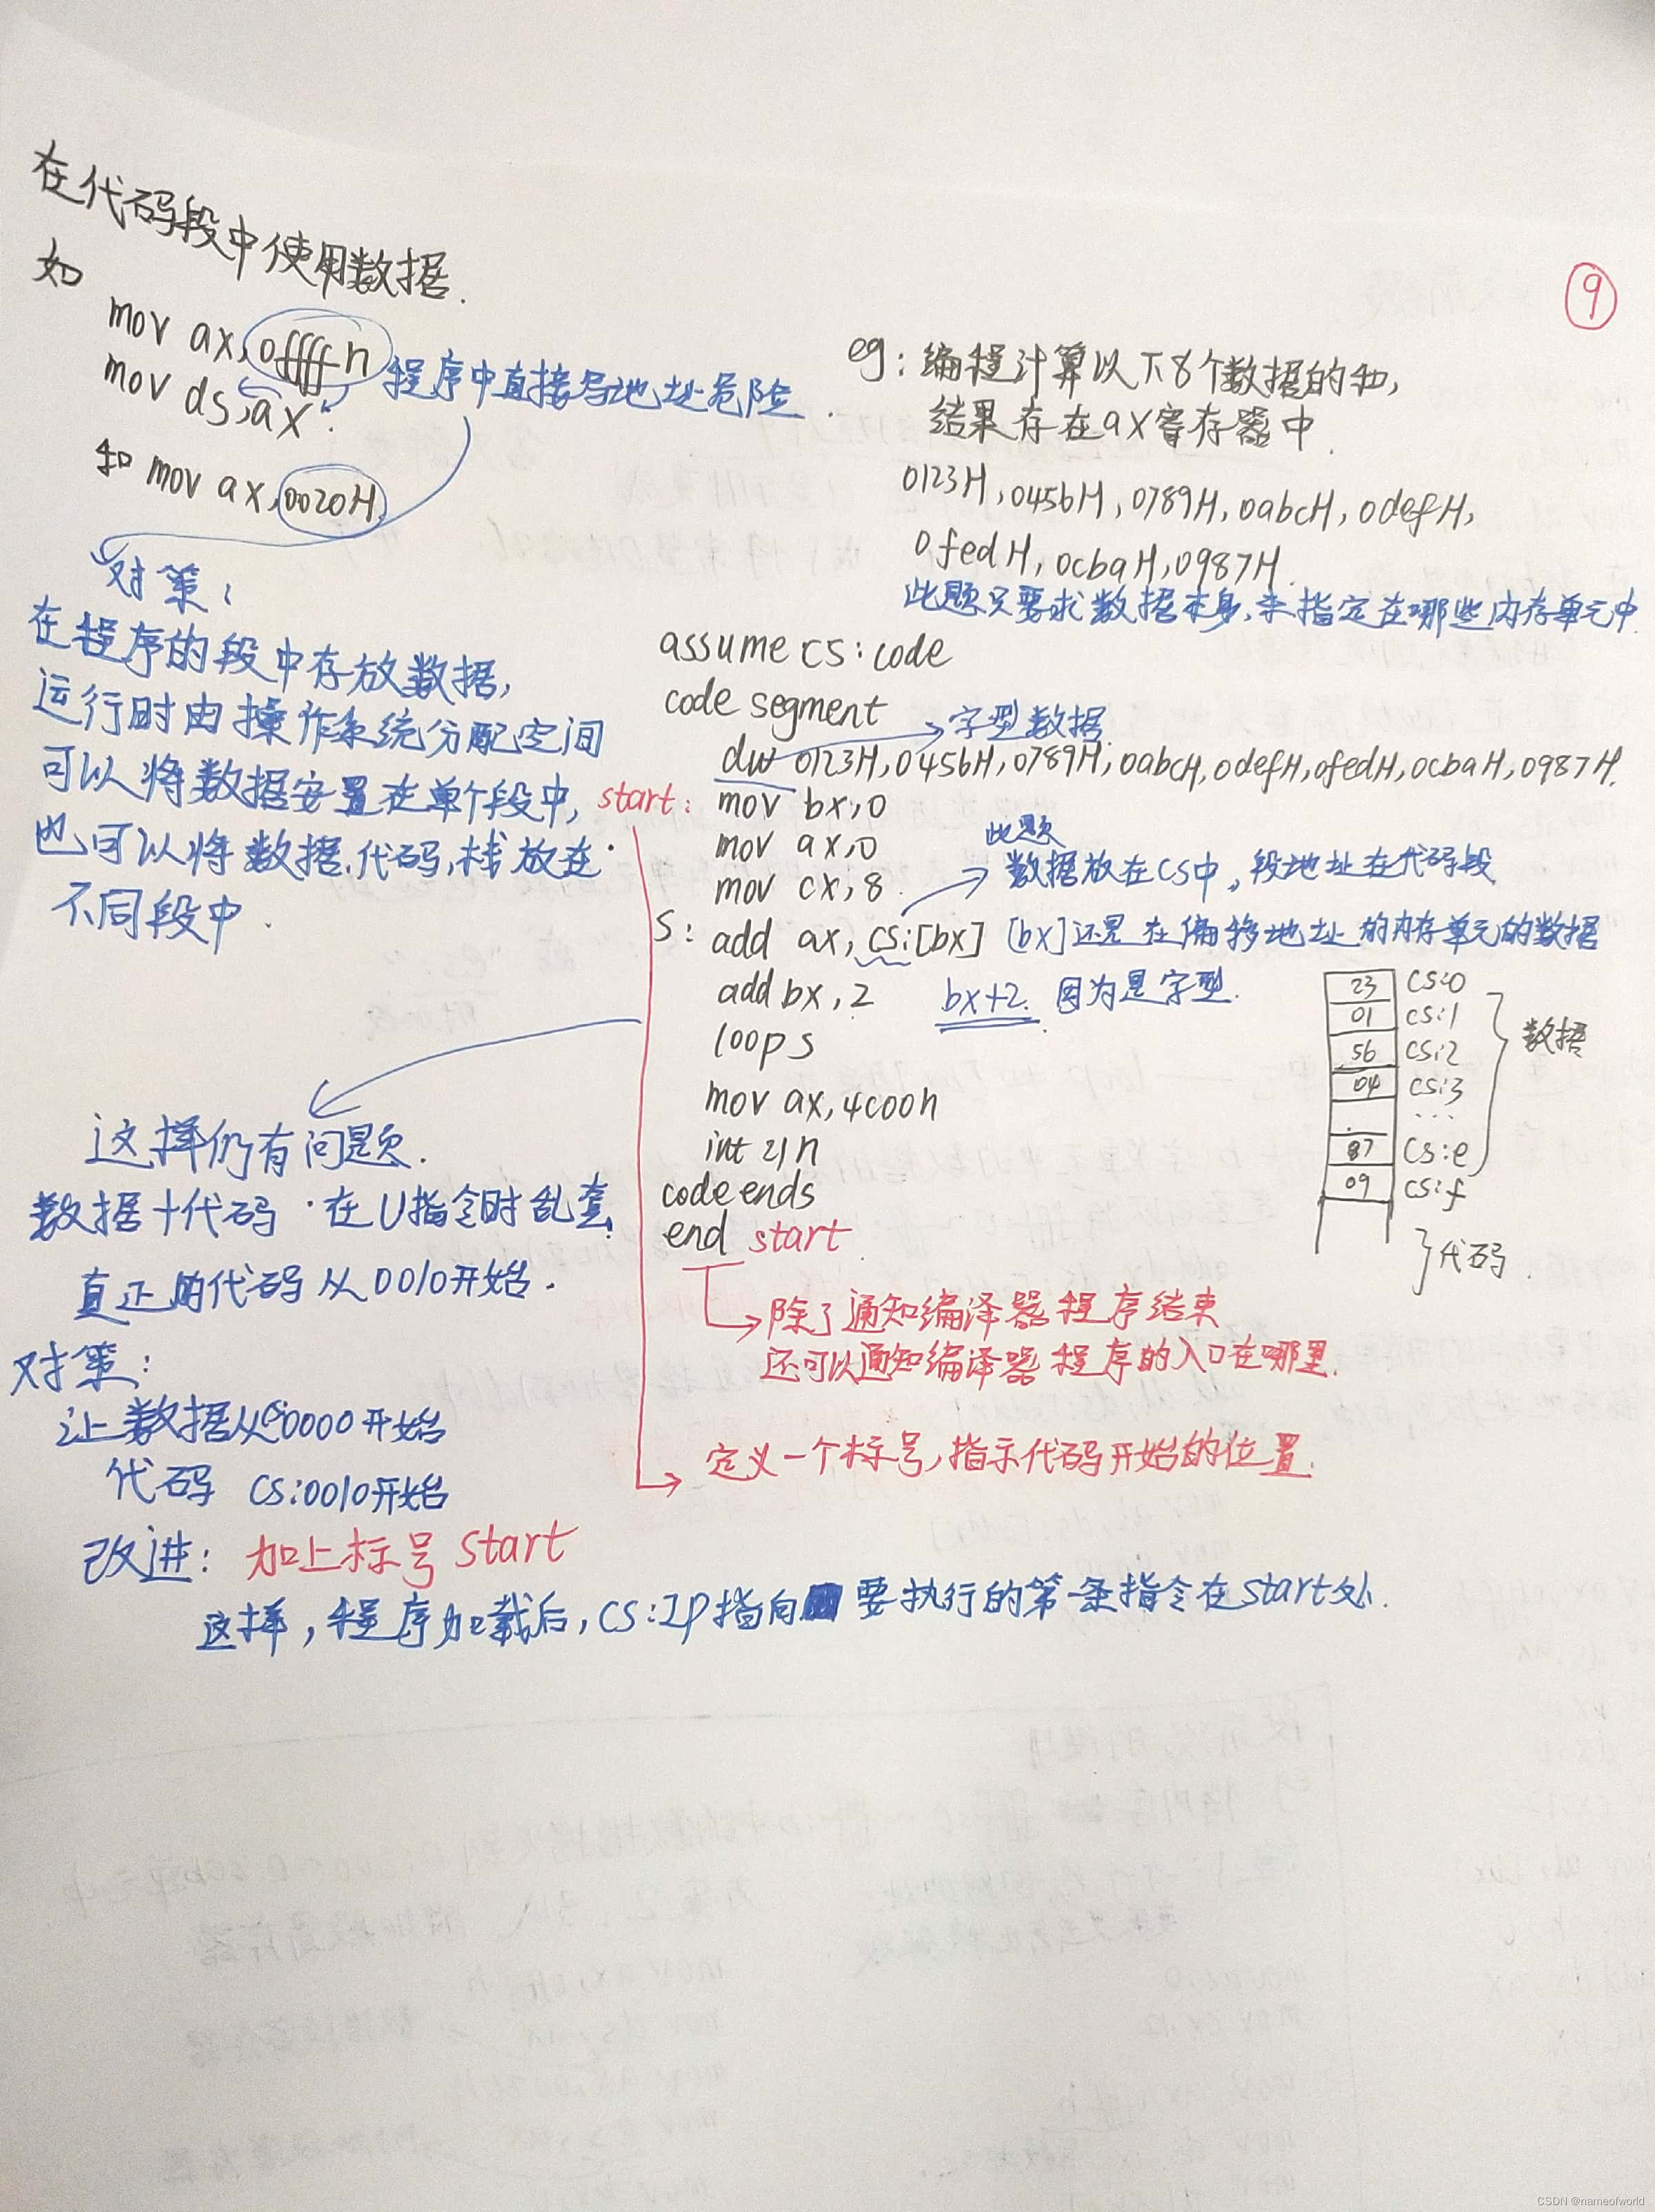 在代码段中使用数据.
如
mov ax,0ffffh
mov ds,ax.
和 mov ax,0020H.
程序中直接写地址危险.
对策:
在程序的段中存放数据,
运行时由操作系统分配空间
可以将数据安置在单个段中,
也可以将数据.代码,栈放在
不同段中.
⑨
eg:编程计算以下8个数据的和,
结果存在ax寄存器中.
0123H,0456H,0789H,0abcH,0defH,
0fedH,0cbaH,0987H.
此题只要求数据本身,未指定在哪些内存单元中.
assume cs:code
code segment
字型数据
dw 0123H,0456H,0789H,0abcH,0defH,0fedH,0cbaH,0987H.
start: mov bx,0
mov ax,0
mov cx,8
此题
数据放在CS中,段地址在代码段
s: add ax,cs:[bx] [bx]还是在偏移地址的内存单元的数据
add bx,2 bx+2.因为是字型.
loop s
mov ax,4c00h
int 21h
code ends
end start
23 CS:0
01 CS:1
56 CS:2
04 CS:3
...
87 CS:e
09 CS:f
数据
代码.
除了通知编译器程序结束
还可以通知编译器程序的入口在哪里.
定义一个标号,指示代码开始的位置.
这样仍有问题.
数据+代码·在U指令时乱套!
真正的代码从0010开始.
对策:
让数据从 0000开始
代码 CS:0010开始
改进: 加上标号 start
这样,程序加载后,CS:IP指向 要执行的第一条指令在start处.
CSDN @nameofworld